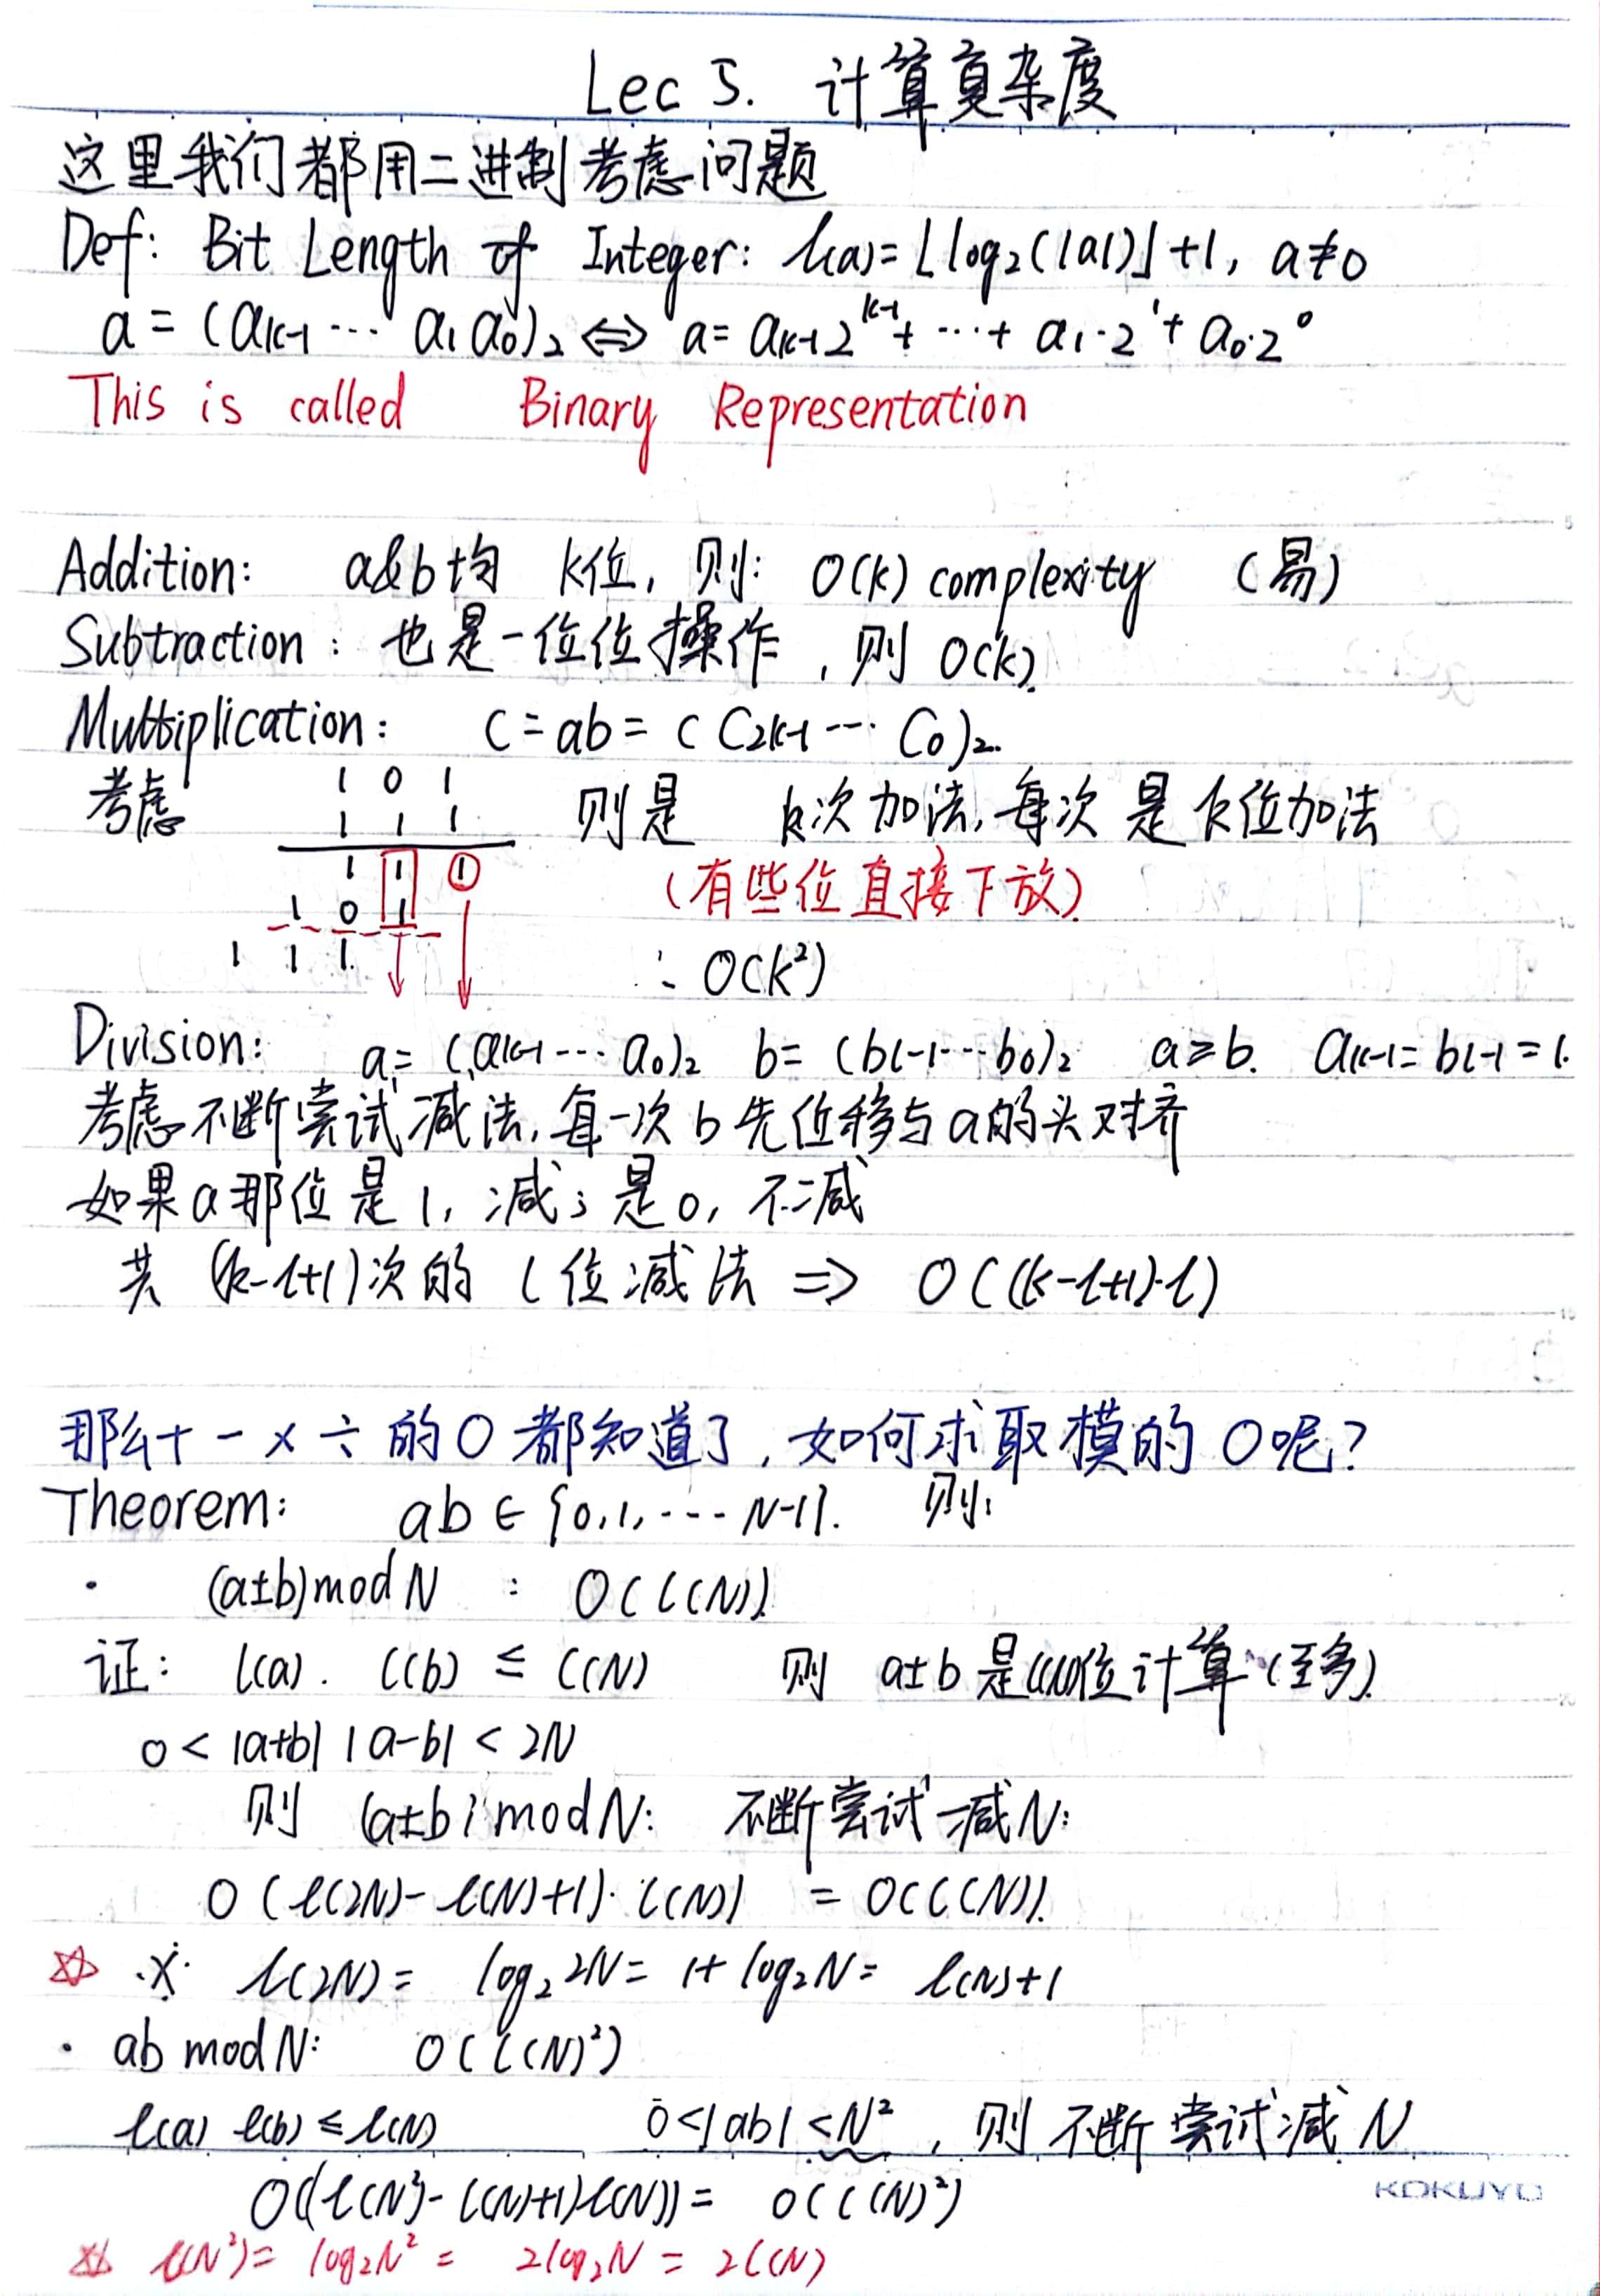 Lec 5. 计算复杂度
这里我们都用二进制考虑问题
Def: Bit Length of Integer: l(a)=⌊log₂(|a|)⌋+1, a≠0
a = (aₖ₋₁ ⋯ a₁a₀)₂ ⟺ a= aₖ₋₁2ᵏ⁻¹+ ⋯ + a₁·2¹+ a₀·2⁰
This is called Binary Representation
Addition: a&b均 k位, 则: O(k) complexity (易)
Subtraction: 也是一位位操作, 则 O(k).
Multiplication: C=ab= (C₂ₖ₋₁ ⋯ C₀)₂.
考虑 1 0 1 则是 k次加法, 每次是k位加法
1 1 1
1 1 1 (有些位直接下放)
1 0 1
1 1 1 ∴ O(k²)
Division: a= (aₖ₋₁⋯a₀)₂ b= (bₗ₋₁⋯b₀)₂ a≥b. aₖ₋₁=bₗ₋₁=1.
考虑不断尝试减法, 每一次b先位移与a的头对齐
如果a那位是1, 减; 是0, 不减
共 (k-l+1)次的 l位减法 ⇒ O((k-l+1)·l)
那么+ - × ÷ 的O都知道了, 如何求取模的O呢?
Theorem: ab ∈ {0,1,⋯N-1}. 则:
· (a±b)mod N : O(l(N)).
证: l(a). l(b) ≤ l(N) 则 a±b是l(N)位计算(至多).
0< |a+b| |a-b| < 2N
则 (a±b) mod N: 不断尝试减N:
O (l(2N)- l(N)+1)·l(N) = O(l(N)).
☆ ※ l(2N)= log₂2N= 1+ log₂N= l(N)+1
· ab mod N: O(l(N)²)
l(a) l(b)≤l(N) 0<|ab|<N², 则不断尝试减N
O((l(N²)- l(N)+1)l(N))= O(l(N)²)
KOKUYO
☆ l(N²)= log₂N² = 2log₂N = 2l(N)